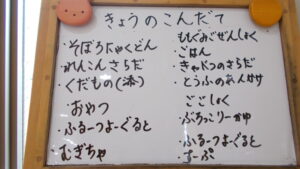 きょうのこんだて
・そぼろにゃくどん
・れんこんさらだ
・くだもの(添)
・おやつ
・ふるーつよーぐると
・むぎちゃ
もぐもぐぜんしょく
・ごはん
・きゃべつのさらだ
・とうふのあんかけ
ごごしょく
・ぶろっこりーかゆ
・ふるーつよーぐると
・すーぷ